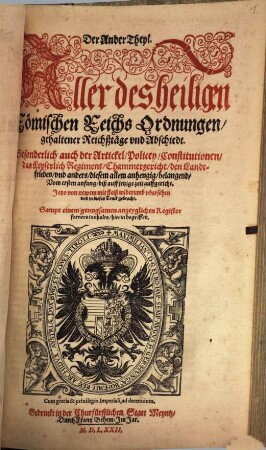 Der Ander Theyl.
Aller des heiligen
Römischen Reichs Ordnungen/
gehaltener Reichßtäge vnd Abschiedt.
Besonderlich auch der Artickel/Policey/Constitutionen/
das Keyserlich Regiment/Chammergericht/den Landt-
frieden/vnd anders/diesem allem anhengig/belangend/
Vom ersten anfang/biß auff jetzige zeit auffgericht.
Jetzo von newem mit fleiß widerumb vbersehen
vnd in diesen Truck gebracht.
Sampt einem gnugsamen anzeiglichen Register
fernern innhalts/hierin begriffen.
Cum gratia & priuilegio Imperiali, ad decennium.
Gedruckt in der Churfürstlichen Statt Meyntz/
Durch Franz Behem/Im Jar.
M. D. LXXII.